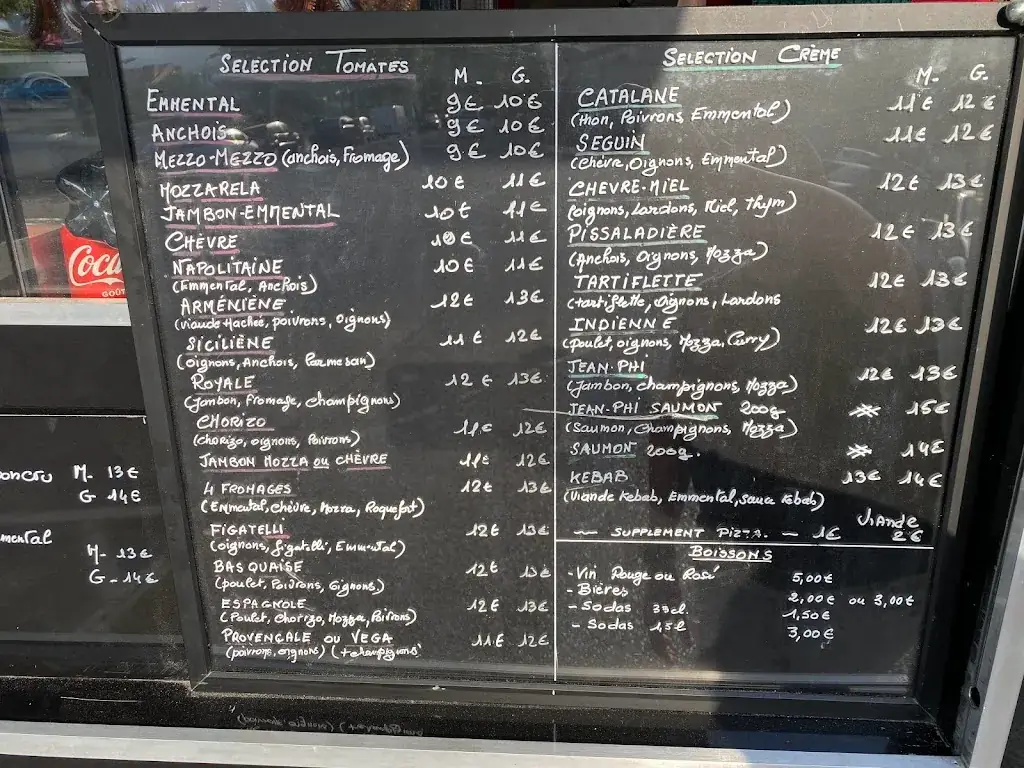 SELECTION TOMATES
M. G.
EMMENTAL 9€ 10€
ANCHOIS 9€ 10€
MEZZO-MEZZO (anchois, Fromage) 9€ 10€
MOZZA-RELA 10€ 11€
JAMBON-EMMENTAL 10€ 11€
CHÈVRE 10€ 11€
NAPOLITAINE 10€ 11€
(Emmental, Anchois)
ARMÉNIÈNE 12€ 13€
(Viande Hachée, poivrons, Oignons)
SICILIÈNE 11€ 12€
(Oignons, Anchois, Parmesan)
ROYALE 12€ 13€
(Jambon, Fromage, champignons)
CHORIZO 11€ 12€
(chorizo, oignons, Poivrons)
JAMBON MOZZA OU CHÈVRE 11€ 12€
4 FROMAGES 12€ 13€
(Emmental, Chèvre, Mozza, Roquefort)
FIGATELLI 12€ 13€
(oignons, figatelli, Emmental)
BASQUAISE 12€ 13€
(poulet, Poivrons, Oignons)
ESPAGNOLE 12€ 13€
(Poulet, Chorizo, Mozza, Poivrons)
PROVENÇALE OU VEGA 11€ 12€
(poivrons, oignons) (+champignons)
SELECTION CRÈME
M. G.
CATALANE 11€ 12€
(thon, Poivrons Emmental)
SEGUIN 11€ 12€
(Chèvre, Oignons, Emmental)
CHEVRE-MIEL 12€ 13€
(oignons, Lardons, Miel, Thym)
PISSALADIÈRE 12€ 13€
(Anchois, Oignons, Mozza)
TARTIFLETTE 12€ 13€
(tartiflette, Oignons, Lardons
INDIENNE 12€ 13€
(poulet, oignons, Mozza, Curry)
JEAN-PHI 12€ 13€
(Jambon, champignons, Mozza)
JEAN-PHI SAUMON 200g 15€
(Saumon, Champignons, Mozza)
SAUMON 200g. 14€
KEBAB 13€ 14€
(Viande Kebab, Emmental, Sauce Kebab)
Viande
— SUPPLEMENT PIZZA. — 1€ 2€
BOISSONS
- Vin Rouge ou Rosé 5,00€
- Bières 2,00€ ou 3,00€
- Sodas 33cl. 1,50€
- Sodas 1,5l 3,00€
M. 13€
G 14€
mental
M. 13€
G - 14€
Coca
GOÛT